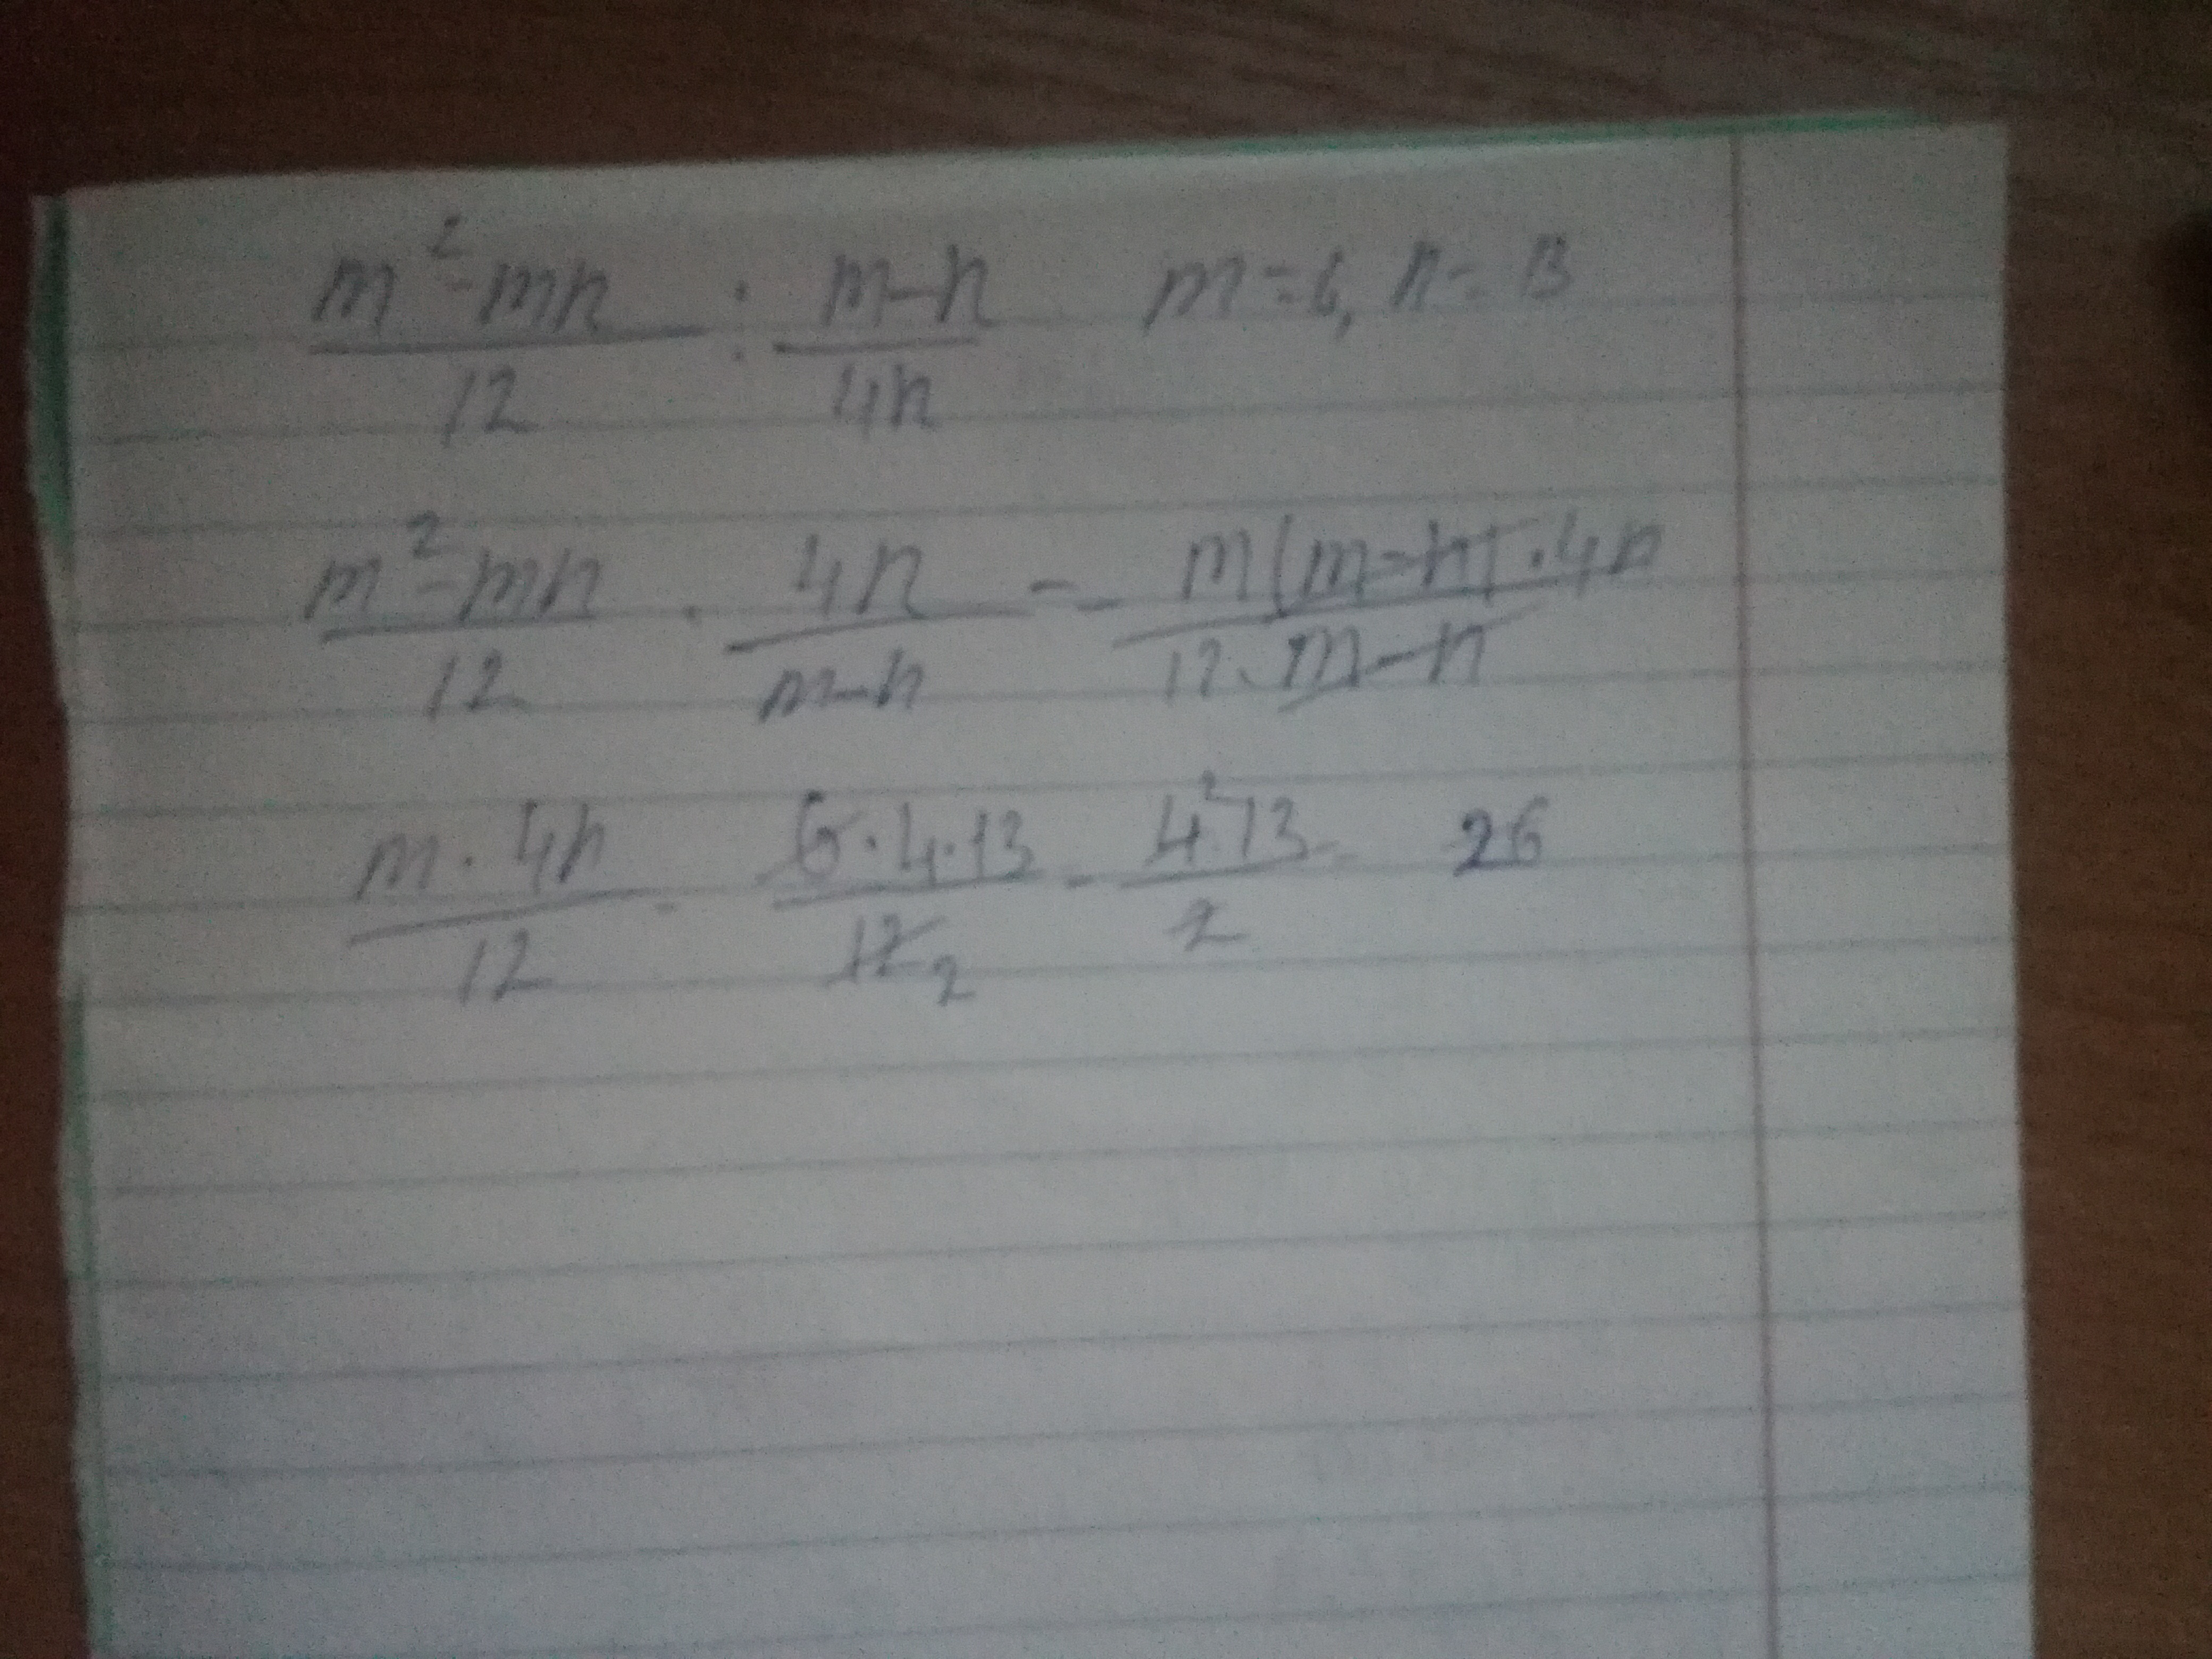 m²-mn/12 : m-n/4n m=6, n=13
m²-mn/12 · 4n/m-n = m(m-n)·4n/12·m-n
m·4n/12 = 6·4·13/12 2 = 4 2 13/2 = 26